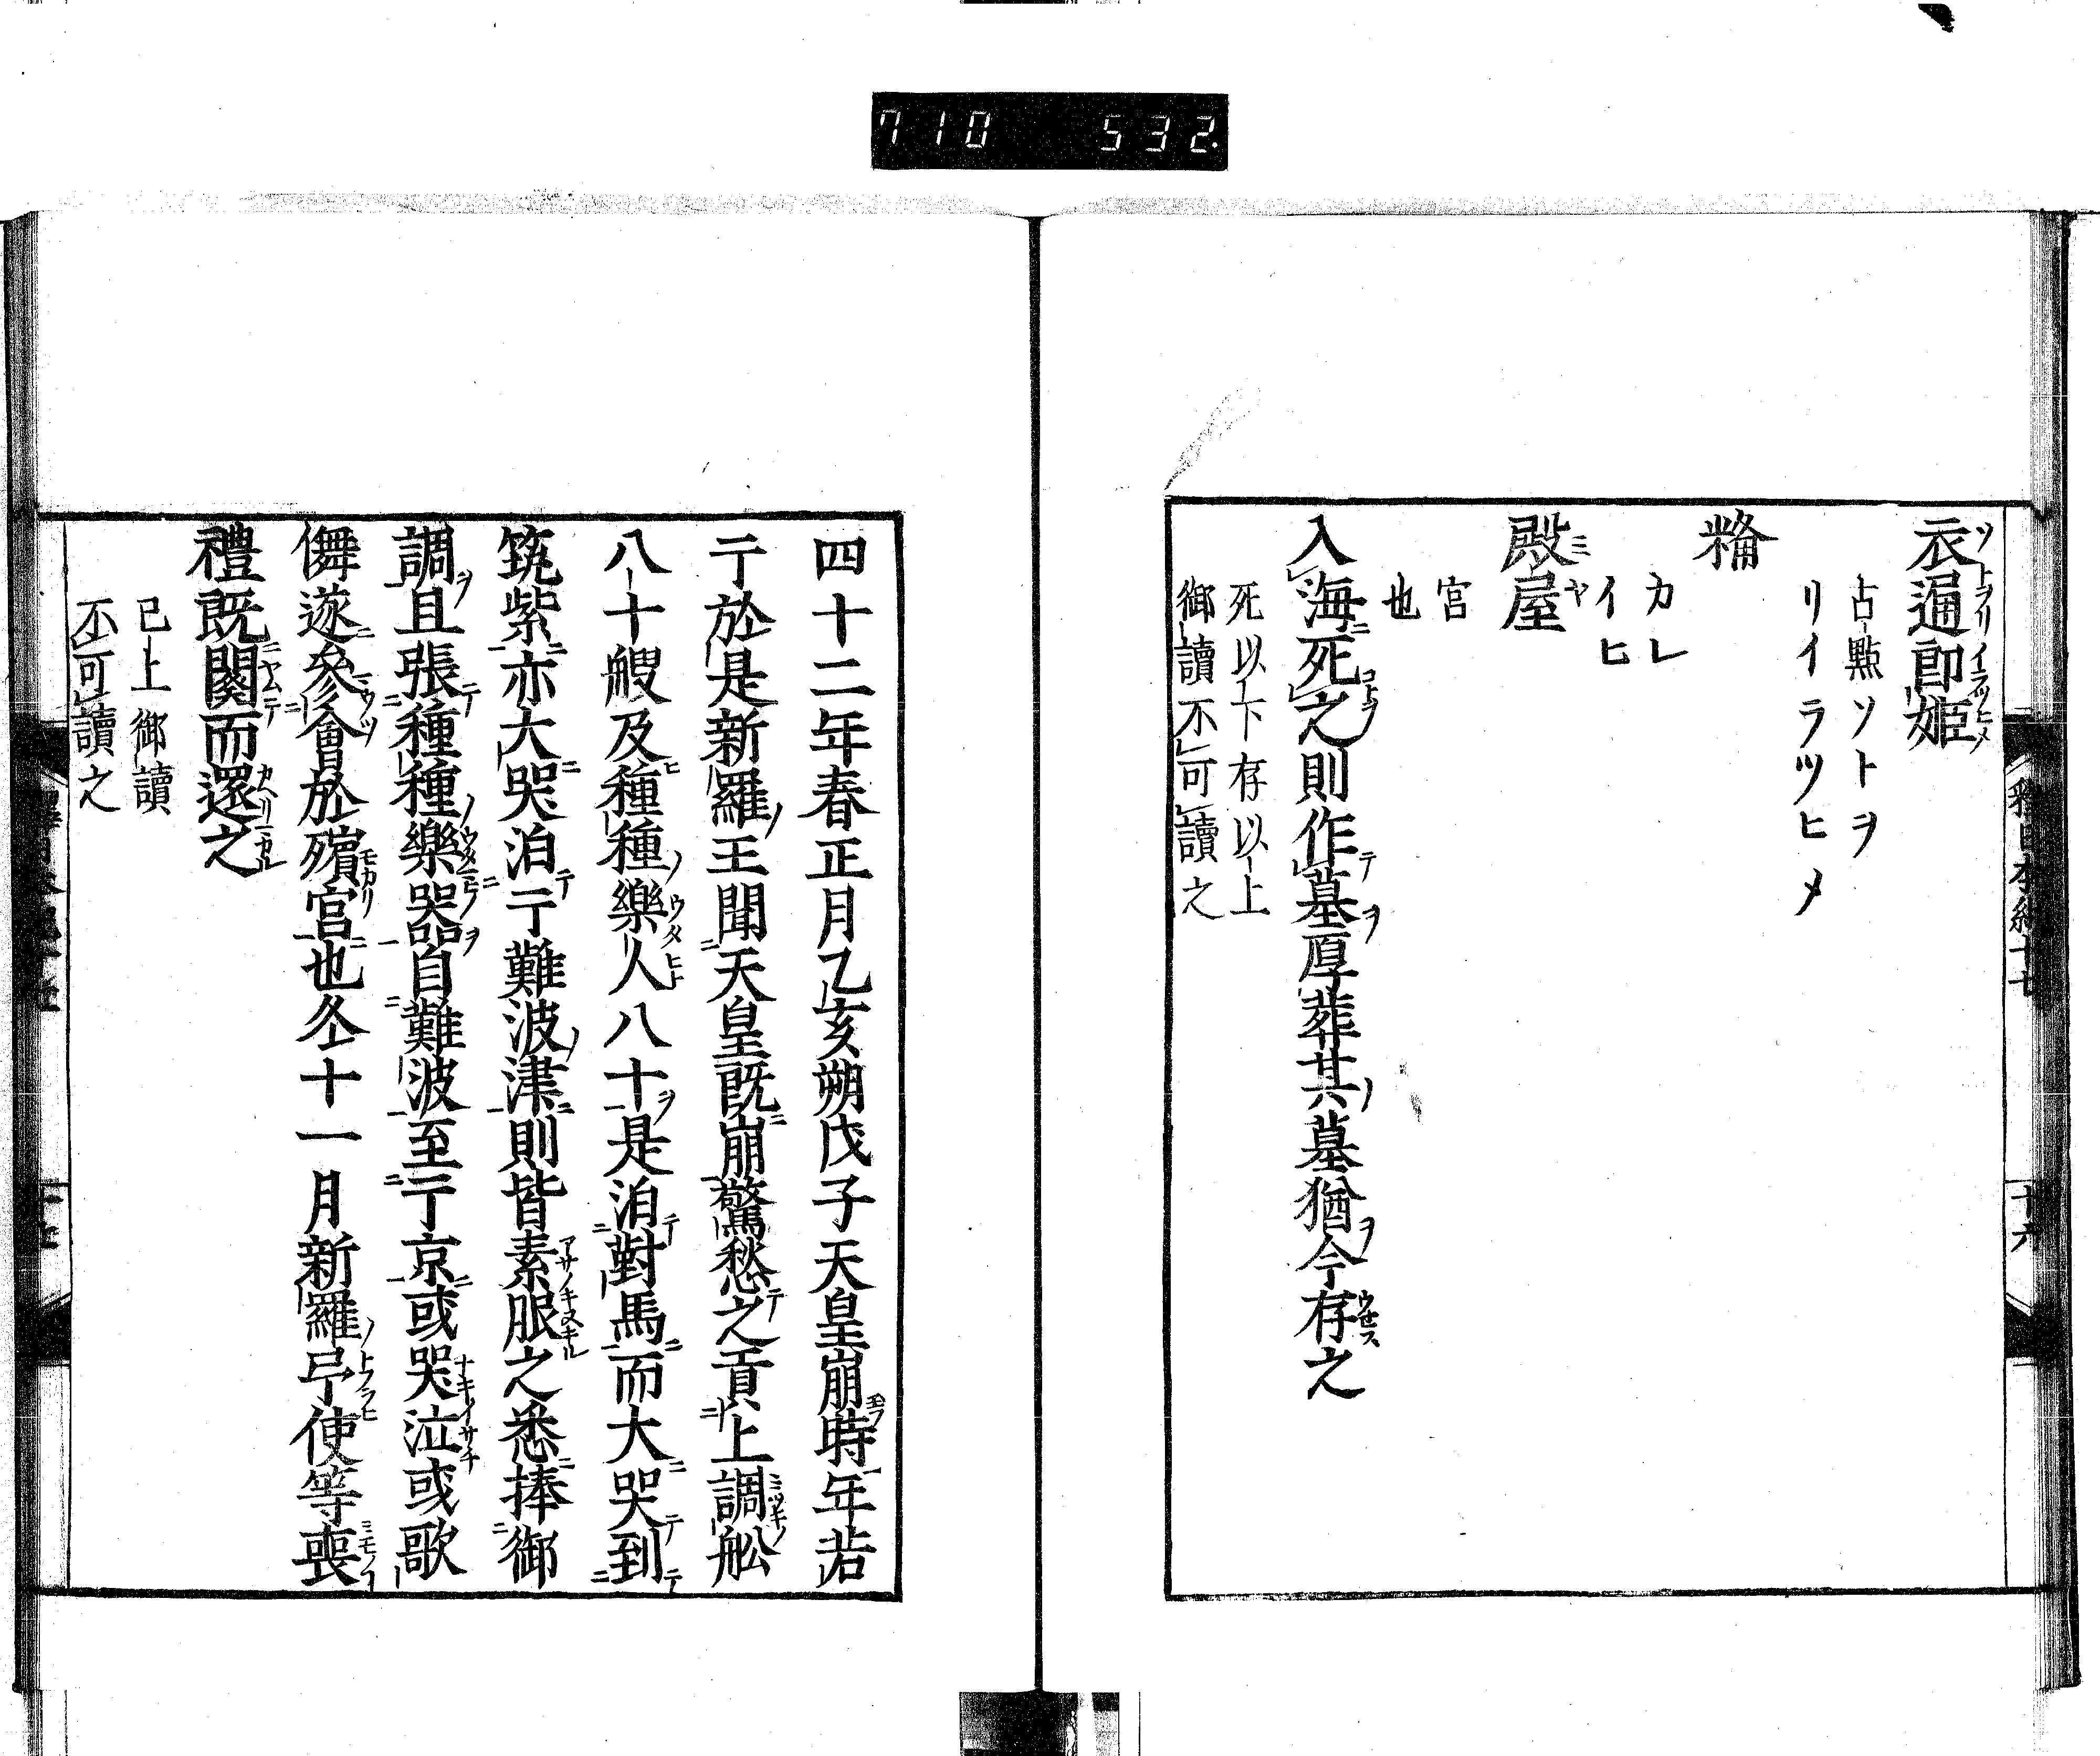 710 532
衣通郎姫
古點ソトヲ
リイラツヒメ
糒
カレ
イヒ
殿屋
宮
也
入海死之則作墓厚葬其墓猶今存之
死以下存以上
御讀不可讀之
四十二年春正月乙亥朔戊子天皇崩時年若
干於是新羅王聞天皇既崩驚愁之貢上調舩
八十艘及種種樂人八十是泊對馬而大哭到
筑紫亦大哭泊于難波津則皆素服之悉捧御
調且張種種樂器自難波至于京或哭泣或歌
儛遂參會於殯宮也冬十一月新羅弔使等喪
禮既闋而還之
已上御讀
不可讀之